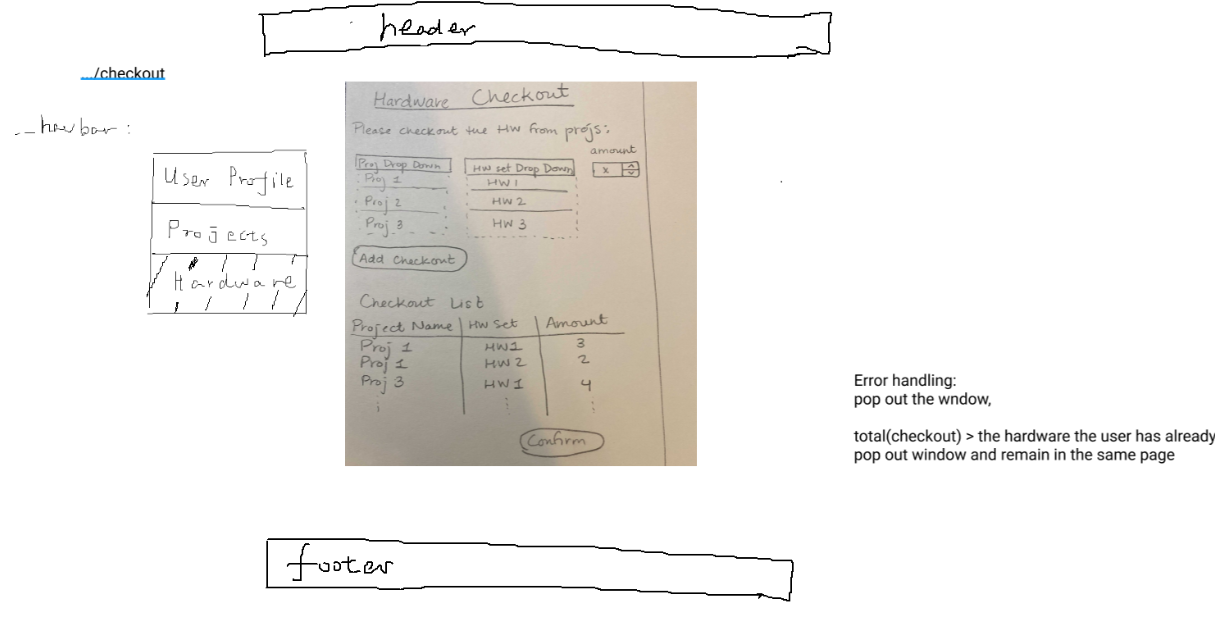 header
.../checkout
navbar:
User Profile
Projects
Hardware
Hardware Checkout
Please checkout the HW from projs:
amount
Proj Drop Down
HW set Drop Down
x
Proj 1
HW 1
Proj 2
HW 2
Proj 3
HW 3
Add Checkout
Checkout List
Project Name | HW Set | Amount
Proj 1 HW1 3
Proj 1 HW2 2
Proj 3 HW1 4
Confirm
Error handling:
pop out the wndow,
total(checkout) > the hardware the user has already
pop out window and remain in the same page
footer